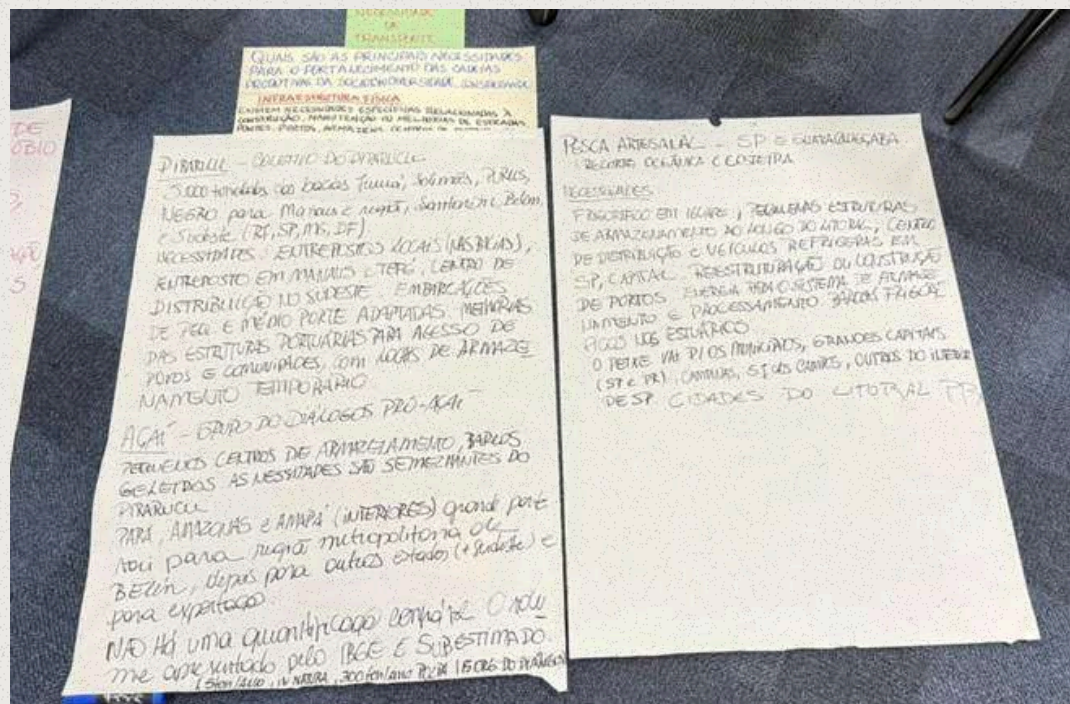 NECESSIDADE
DE
TRANSPORTE
QUAIS SÃO AS PRINCIPAIS NECESSIDADES
PARA O FORTALECIMENTO DAS CADEIAS
PRODUTIVAS DA SOCIOBIODIVERSIDADE CONSIDERANDO
INFRAESTRUTURA FÍSICA
EXISTEM NECESSIDADES ESPECÍFICAS RELACIONADAS À
CONSTRUÇÃO, MANUTENÇÃO OU MELHORIAS DE ESTRADAS
PONTES, PORTOS, ARMAZÉNS
DE
ÓBIO
S
PIRARUCU - COLETIVO DO PIRARUCU
5.000 toneladas das bacias Juruá, Solimões, PURUS,
NEGRO para Manaus e região, Santarém, Belém
e Sudeste (RJ, SP, MG, DF)
NECESSIDADES: ENTREPOSTOS LOCAIS (NAS BACIAS),
ENTREPOSTO EM MANAUS E TEFÉ, CENTRO DE
DISTRIBUIÇÃO NO SUDESTE EMBARCAÇÕES
DE PEQ. E MÉDIO PORTE ADAPTADAS. MELHORIAS
DAS ESTRUTURAS PORTUÁRIAS PARA ACESSO DE
POVOS E COMUNIDADES, COM LOCAIS DE ARMAZE
NAMENTO TEMPORÁRIO
AÇAÍ - GRUPO DO DIÁLOGOS PRÓ-AÇAÍ
PEQUENOS CENTROS DE ARMAZENAMENTO, BARCOS
GELEIROS AS NESSIDADES SÃO SEMELHANTES DO
PIRARUCU
PARÁ, AMAZONAS e AMAPÁ (INTERIORES) grande parte
vai para região metropolitana de
BELÉM, depois para outros estados (+ Sudeste) e
para exportação.
NÃO Há uma quantificação confiável O volu
me apresentado pelo IBGE É SUBESTIMADO.
IN NATURA, 300 ton/ano
PESCA ARTESANAL - SP E GUARAQUEÇABA
RECORTE OCEÂNICA E COSTEIRA
NECESSIDADES
FRIGORÍFICO EM IGUAPE, PEQUENAS ESTRUTURAS
DE ARMAZENAMENTO AO LONGO DO LITORAL, CENTRO
DE DISTRIBUIÇÃO E VEÍCULOS REFRIGERAS EM
SP, CAPITAL. REESTRUTURAÇÃO OU CONSTRUÇÃO
DE PORTOS. ENERGIA PARA O SISTEMA DE ARMAZE
NAMENTO E PROCESSAMENTO BARCOS FRIGORÍ
FICOS NOS ESTUÁRIOS
O PEIXE VAI P/ OS MUNICÍPIOS, GRANDES CAPITAIS
(SP e PR), CAMPINAS, SJ DOS CAMPOS, OUTROS DO INTERIOR
DE SP CIDADES DO LITORAL PR